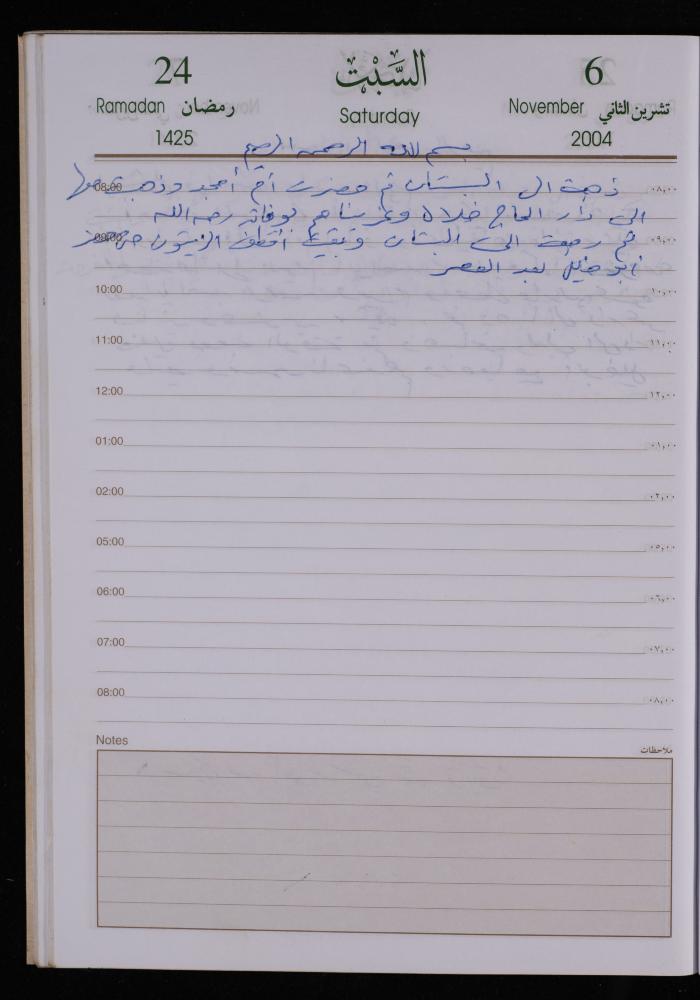 24 السَّبْت 6
Ramadan رمضان Saturday November تشرين الثاني
1425 2004
بسم الله الرحمن الرحيم
08:00 ذهبت الى البستان ثم حضرت أم أمجد وذهبت معها ٠٨,٠٠
الى دار الحاج خلاد وعزيناهم بوفاته رحمه الله
09:00 ثم رجعت الى البستان وبقيت أقطف الزيتون ٠٩,٠٠
أبو خليل لبعد العصر
10:00 ١٠,٠٠
11:00 ١١,٠٠
12:00 ١٢,٠٠
01:00 ٠١,٠٠
02:00 ٠٢,٠٠
05:00 ٠٥,٠٠
06:00 ٠٦,٠٠
07:00 ٠٧,٠٠
08:00 ٠٨,٠٠
Notes ملاحظات